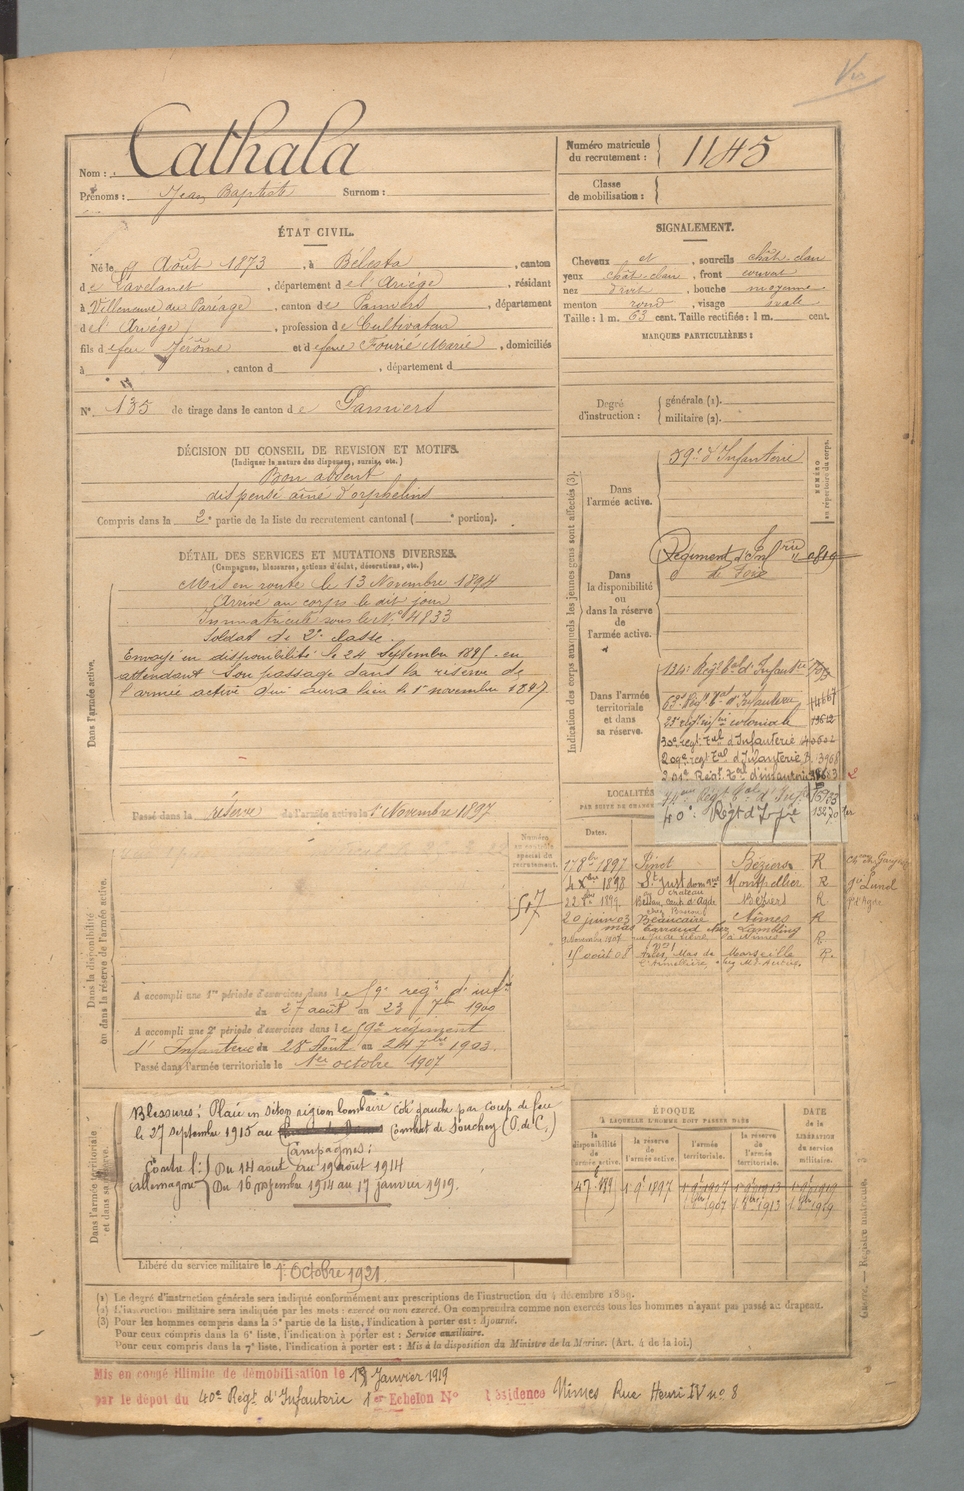 Nom : Cathala
Prénoms : Jean Baptiste Surnom :
Numéro matricule du recrutement : 1145
Classe de mobilisation :
ÉTAT CIVIL.
Né le 9 Août 1873, à Bélesta, canton
de Lavelanet, département de l'Ariége, résidant
à Villeneuve du Paréage, canton de Pamiers, département
de l'Ariége, profession de Cultivateur
fils de feu Jérôme et de feue Fourié Marie, domiciliés
à , canton d , département d
N° 135 de tirage dans le canton de Pamiers
SIGNALEMENT.
Cheveux et, sourcils chât. clair
yeux chât. clair, front couvert
nez droit, bouche moyenne
menton rond, visage ovale
Taille : 1 m. 63 cent. Taille rectifiée : 1 m. cent.
MARQUES PARTICULIÈRES :
Degré d'instruction : générale (1).
militaire (2).
DÉCISION DU CONSEIL DE REVISION ET MOTIFS.
(Indiquer la nature des dispenses, sursis, etc.)
Bon absent
dispensé aîné d'orphelins
Compris dans la 2e partie de la liste du recrutement cantonal ( e portion).
DÉTAIL DES SERVICES ET MUTATIONS DIVERSES.
(Campagnes, blessures, actions d'éclat, décorations, etc.)
Dans l'armée active.
Mis en route le 13 Novembre 1894
Arrivé au corps le dit jour
Immatriculé sous le N° 4833
Soldat de 2e classe.
Envoyé en disponibilité le 24 septembre 1895 en
attendant son passage dans la réserve de
l'armée active qui aura lieu le 1er novembre 1897
Passé dans la réserve de l'armée active le 1er Novembre 1897
Indication des corps auxquels les jeunes gens sont affectés (3).
NUMÉRO au répertoire du corps.
Dans l'armée active.
59e d'Infanterie
Dans la disponibilité ou dans la réserve de l'armée active.
Régiment d'Infrie
de Foix
Dans l'armée territoriale et dans sa réserve.
134e Régt Tal d'Infanterie
63e Régt Tal d'Infanterie 4667
coloniale
30e régt Tal d'Infanterie
209e régt Tal d'Infanterie 3968
201e Régt Tal d'infanterie
40e Régt d'Infie
LOCALITÉS
Dates.
1898 St Just Montpellier R
Bessan, cant. d'Agde Béziers R
20 juin 03 Beaucaire Nîmes R
9 Novembre 1907 R
15 août 08 Arles, Mas de l'Armellière Marseille R.
Numéro au contrôle spécial du recrutement.
517
Dans la disponibilité ou dans la réserve de l'armée active.
A accompli une 1re période d'exercices dans le 59e regt d'infie
du 27 août au 23 7bre 1900
A accompli une 2e période d'exercices dans le 59e régiment
d'Infanterie du 28 Août au 24 7bre 1903.
Passé dans l'armée territoriale le 1er octobre 1907
Dans l'armée territoriale et dans sa réserve.
Blessures : Plaie en séton région lombaire côté gauche par coup de feu
le 27 septembre 1915 au combat de Souchez (P. de C.)
Campagnes :
Contre l'Allemagne
Du 14 août au 19 août 1914
Du 16 novembre 1914 au 17 janvier 1919.
Libéré du service militaire le 1er Octobre 1921.
ÉPOQUE
À LAQUELLE L'HOMME DOIT PASSER DANS
la disponibilité de l'armée active.
la réserve de l'armée active.
l'armée territoriale.
la réserve de l'armée territoriale.
DATE de la LIBÉRATION du service militaire.
1er 9bre 1897 1er 9bre 1907 1er 9bre 1913 1er 9bre 1919
1er 8bre 1907 1er 8bre 1913 1er 8bre 1919
(1) Le degré d'instruction générale sera indiqué conformément aux prescriptions de l'instruction du 4 décembre 1889.
(2) L'instruction militaire sera indiquée par les mots : exercé ou non exercé. On comprendra comme non exercés tous les hommes n'ayant pas passé au drapeau.
(3) Pour les hommes compris dans la 5e partie de la liste, l'indication à porter est : Ajourné.
Pour ceux compris dans la 6e liste, l'indication à porter est : Service auxiliaire.
Pour ceux compris dans la 7e liste, l'indication à porter est : Mis à la disposition du Ministre de la Marine. (Art. 4 de la loi.)
Mis en congé illimité de démobilisation le Janvier 1919
par le dépôt du 40e Régt d'Infanterie 1er Echelon N° Résidence Nimes Rue Henri IV no 8